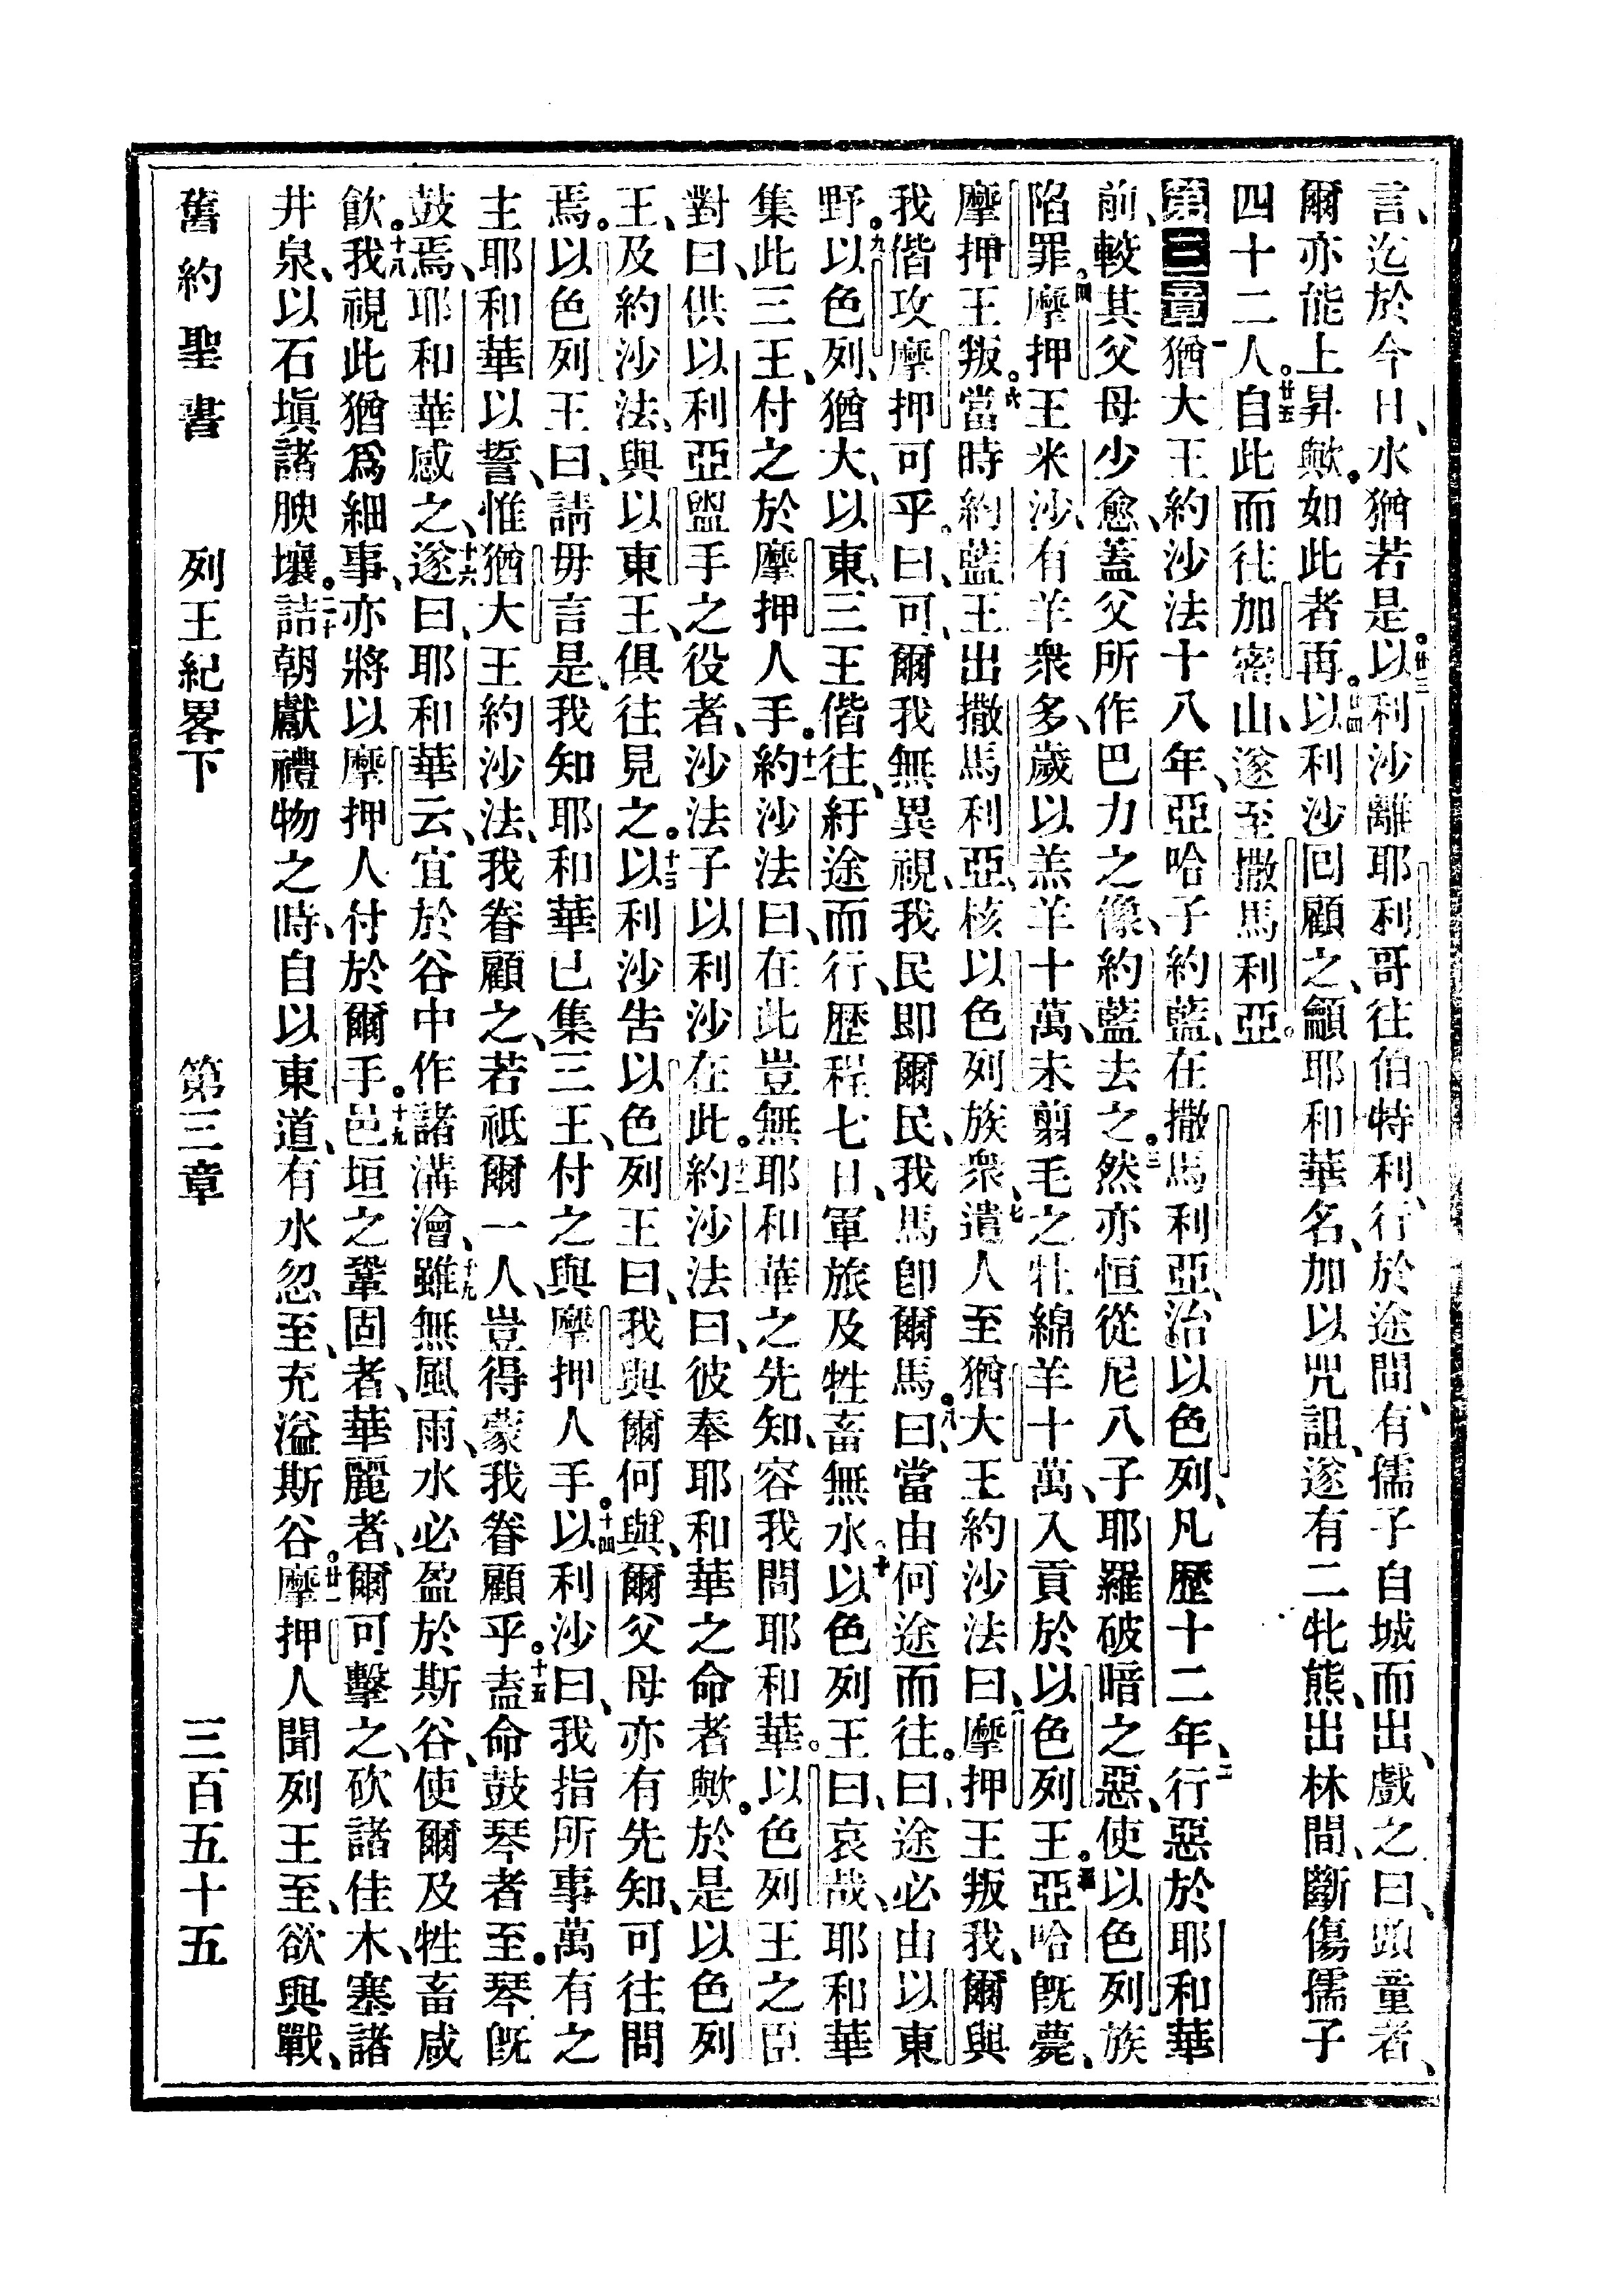 言、迄於今日、水猶若是。廿三以利沙離耶利哥往伯特利、行於途間、有孺子自城而出、戲之曰、頭童者、
爾亦能上昇歟。如此者再。廿四以利沙回顧之、籲耶和華名、加以咒詛、遂有二牝熊、出林間、斷傷孺子
四十二人。廿五自此而往加密山、遂至撒馬利亞。
第三章一猶大王約沙法十八年、亞哈子約藍、在撒馬利亞、治以色列、凡歷十二年、二行惡於耶和華
前、較其父母少愈、蓋父所作巴力之像、約藍去之。三然亦恒從尼八子耶羅破暗之惡、使以色列族
陷罪。四摩押王米沙、有羊衆多、歲以羔羊十萬、未剪毛之牡綿羊十萬、入貢於以色列王。五亞哈旣薨、
摩押王叛。六當時約藍王出撒馬利亞、核以色列族衆、七遣人至猶大王約沙法曰、摩押王叛我、爾與
我偕攻摩押可乎。曰、可、爾我無異視、我民卽爾民、我馬卽爾馬。八曰、當由何途而往。曰、途必由以東
野。九以色列、猶大、以東、三王偕往、紆途而行、歷程七日、軍旅及牲畜無水。十以色列王曰、哀哉、耶和華
集此三王、付之於摩押人手。十一約沙法曰、在此豈無耶和華之先知、容我問耶和華。以色列王之臣
對曰、供以利亞盥手之役者、沙法子以利沙在此。十二約沙法曰、彼奉耶和華之命者歟。於是以色列
王、及約沙法、與以東王、俱往見之。十三以利沙告以色列王曰、我與爾何與、爾父母亦有先知、可往問
焉。以色列王曰、請毋言是、我知耶和華已集三王、付之與摩押人手。十四以利沙曰、我指所事萬有之
主耶和華以誓、惟猶大王約沙法、我眷顧之、若祇爾一人、豈得蒙我眷顧乎。十五盍命鼓琴者至。琴旣
鼓焉、耶和華感之、十六遂曰、耶和華云、宜於谷中作諸溝澮、十九雖無風雨、水必盈於斯谷、使爾及牲畜咸
飮。十八我視此猶爲細事、亦將以摩押人付於爾手。十九邑垣之鞏固者、華麗者、爾可擊之、砍諸佳木、塞諸
井泉、以石塡諸腴壤。二十詰朝獻禮物之時、自以東道、有水忽至、充溢斯谷。廿一摩押人聞列王至、欲與戰、
舊約聖書　列王紀畧下　第三章　三百五十五